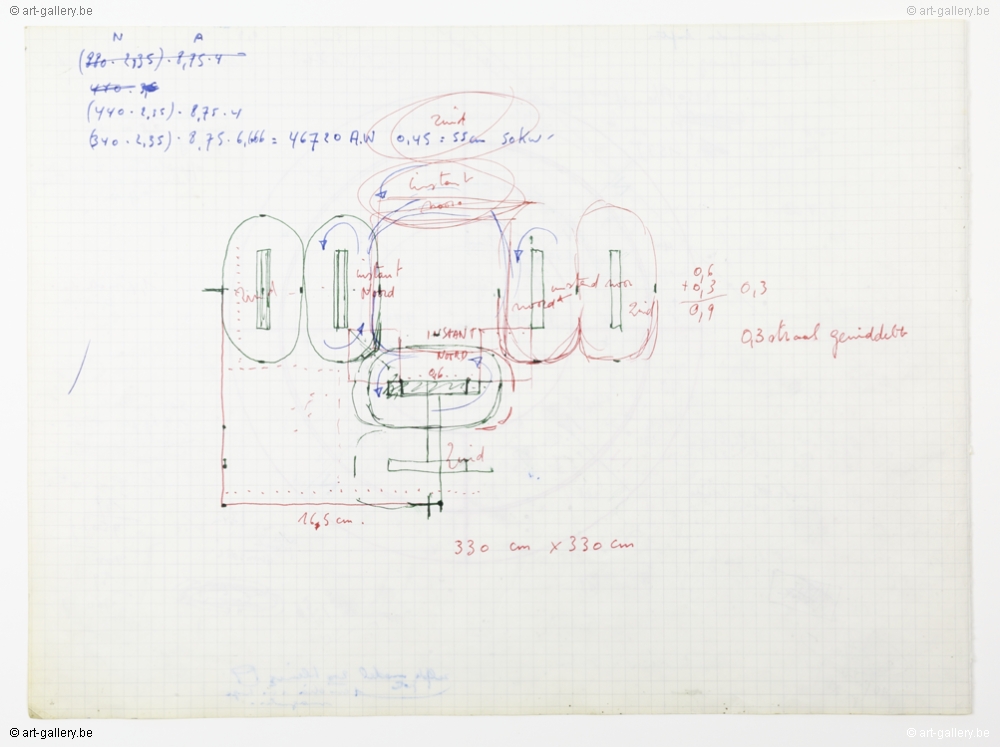 © art-gallery.be © art-gallery.be
N A
(220 · 2,35) · 8,75 · 4
440 ·
(440 · 2,35) · 8,75 · 4
(340 · 2,35) · 8,75 · 6,666 = 46720 A.W 0,45 = 55cm 50KW
Zuid
instant
noord
Zuid
instant
Noord
noord
instant noor
Zuid
0,6
+ 0,3
0,9
0,3
0,3 straal gemiddeld
INSTANT
NOORD
0,6
Zuid
16,5 cm.
330 cm x 330 cm
© art-gallery.be © art-gallery.be